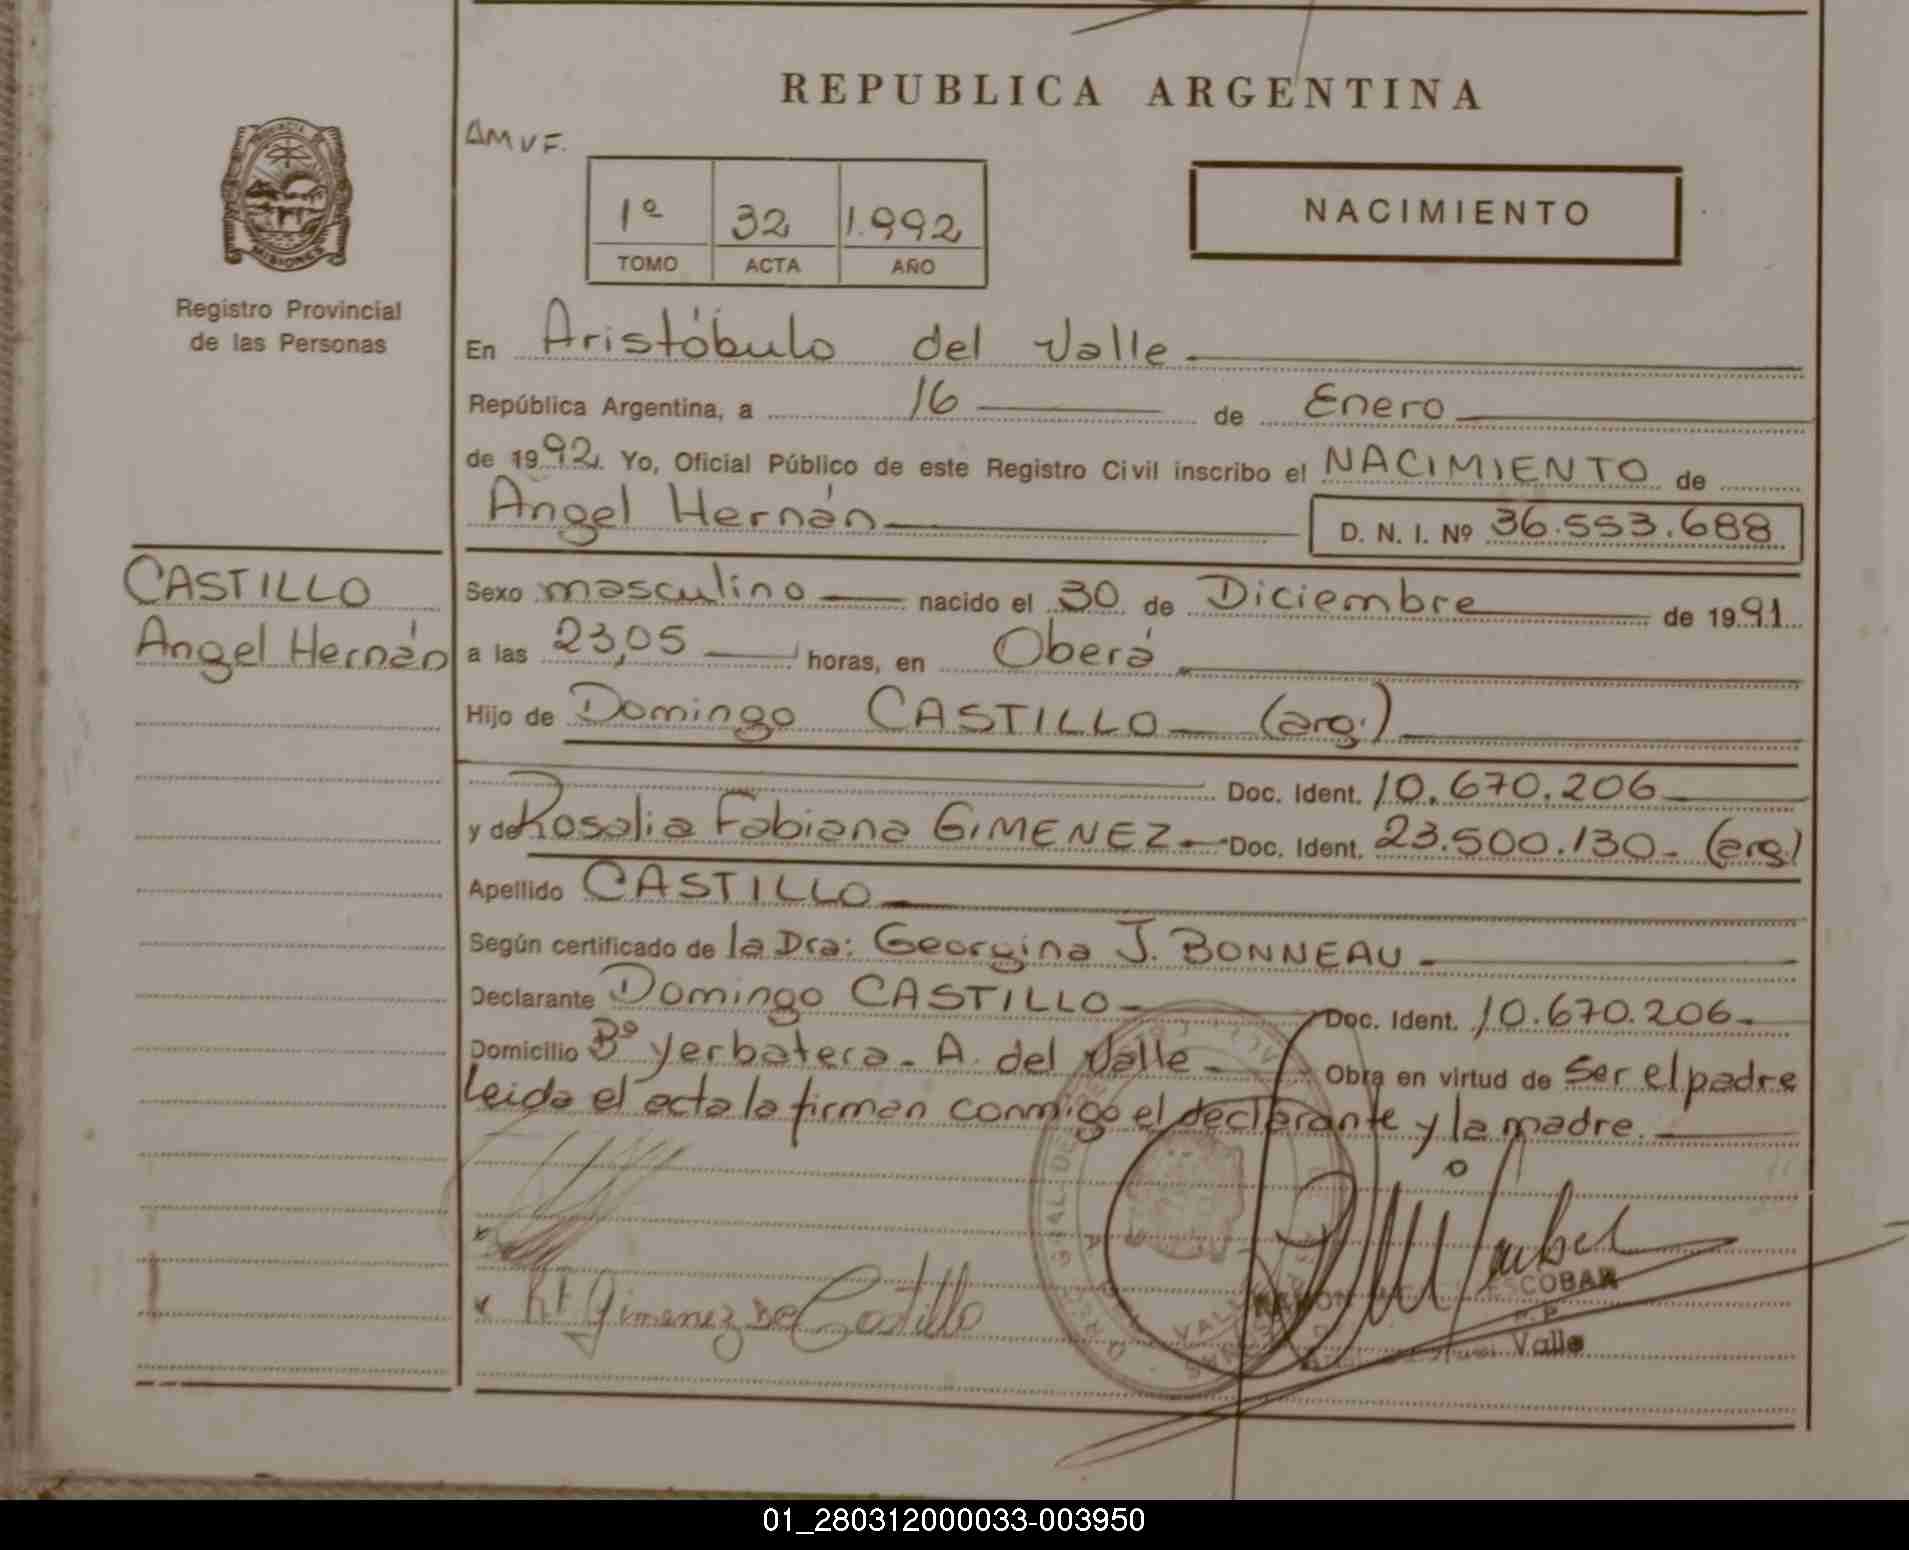 REPUBLICA ARGENTINA
AMVF.
1º 32 1.992
TOMO ACTA AÑO
NACIMIENTO
PROVINCIA DE
MISIONES
Registro Provincial
de las Personas
En Aristóbulo del Valle
República Argentina, a 16 de Enero
de 1992. Yo, Oficial Público de este Registro Civil inscribo el NACIMIENTO de
Angel Hernán D. N. I. Nº 36.553.688
CASTILLO
Angel Hernán
Sexo masculino nacido el 30 de Diciembre de 1991
a las 23,05 horas, en Oberá
Hijo de Domingo CASTILLO (arg.)
Doc. Ident. 10.670.206
y de Rosalia Fabiana GIMENEZ Doc. Ident. 23.500.130- (arg)
Apellido CASTILLO
Según certificado de la Dra: Georgina J. BONNEAU
Declarante Domingo CASTILLO Doc. Ident. 10.670.206-
Domicilio Bº Yerbatera - A. del Valle Obra en virtud de Ser el padre
Leida el acta la firman conmigo el declarante y la madre.
Gimenez De Castillo
RAMON ESCOBAR
Valle
01_280312000033-003950